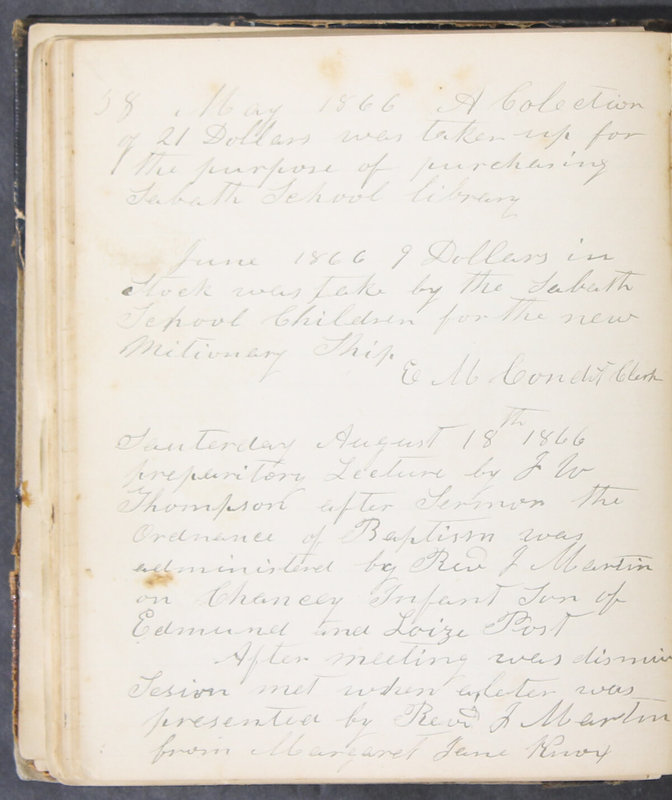 58 May 1866 A Colection
of 21 Dollars was taken up for
the purpose of purchasing
Sabath School library
June 1866 9 Dollars in
Stock was take by the Sabath
School Children for the new
Mitionary Ship
E M Condit Clerk
Sauterday August 18th 1866
preparitory Lecture by J W
Thompson after Sermon the
Ordnance of Baptism was
administerd by Revd J Martin
on Chancey Infant Son of
Edmund and Loize Post
After meeting was dismis
Sesion met when a leter was
presented by Revd J Martin
from Margaret Jane Knox